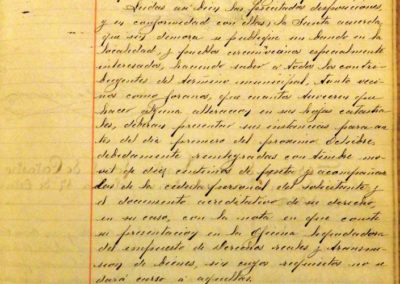 Leidas así las precitadas disposiciones,
y en conformidad con ellas, la Junta acuerda,
que sin demora se publique un bando en la
localidad y pueblos circunvecinos especialmente
interesados, haciendo saber a todos los contri-
buyentes del término municipal, tanto veci-
nos como foranos, que cuantos tuvieren que
hacer alguna alteración en sus hojas catastra-
les, deberán presentar sus instancias para an-
tes del día primero del próximo Octubre,
debidamente reintegradas con timbre mo-
vil de diez centimos de peseta y acompaña-
das de la cédula personal del solicitante y
el documento acreditativo de su derecho,
en su caso, con la nota en que conste
su presentación en la Oficina liquidadora
del impuesto de Derechos reales y transmi-
sion de bienes, sin cuyo requisitos no se
dará curso á aquellas.